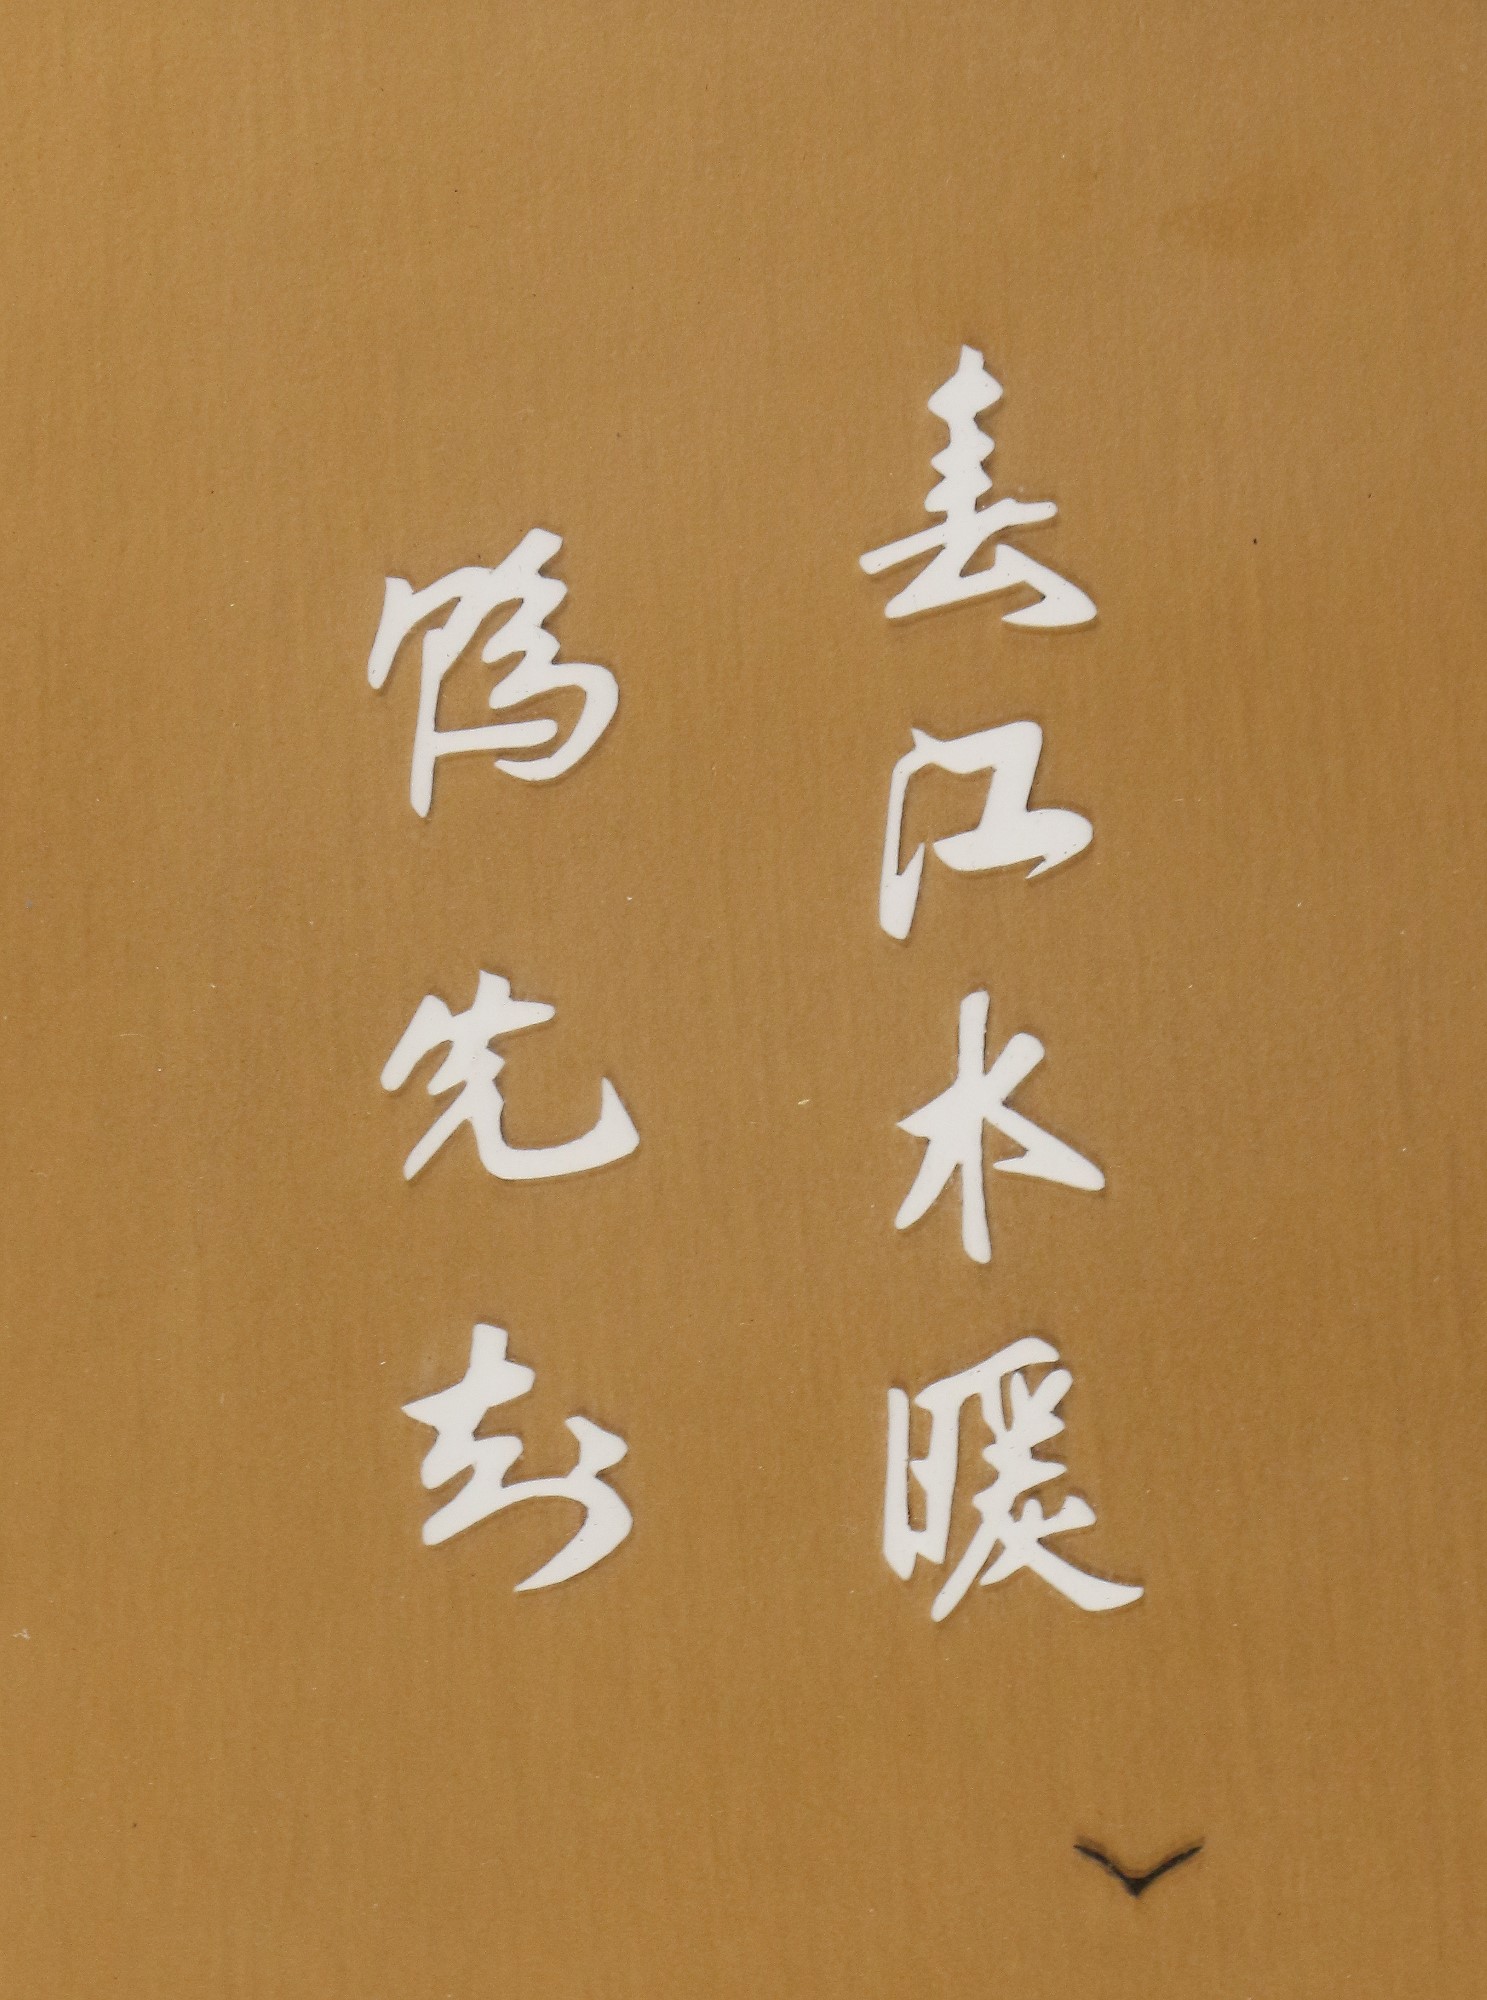 春江水暖
鴨先知